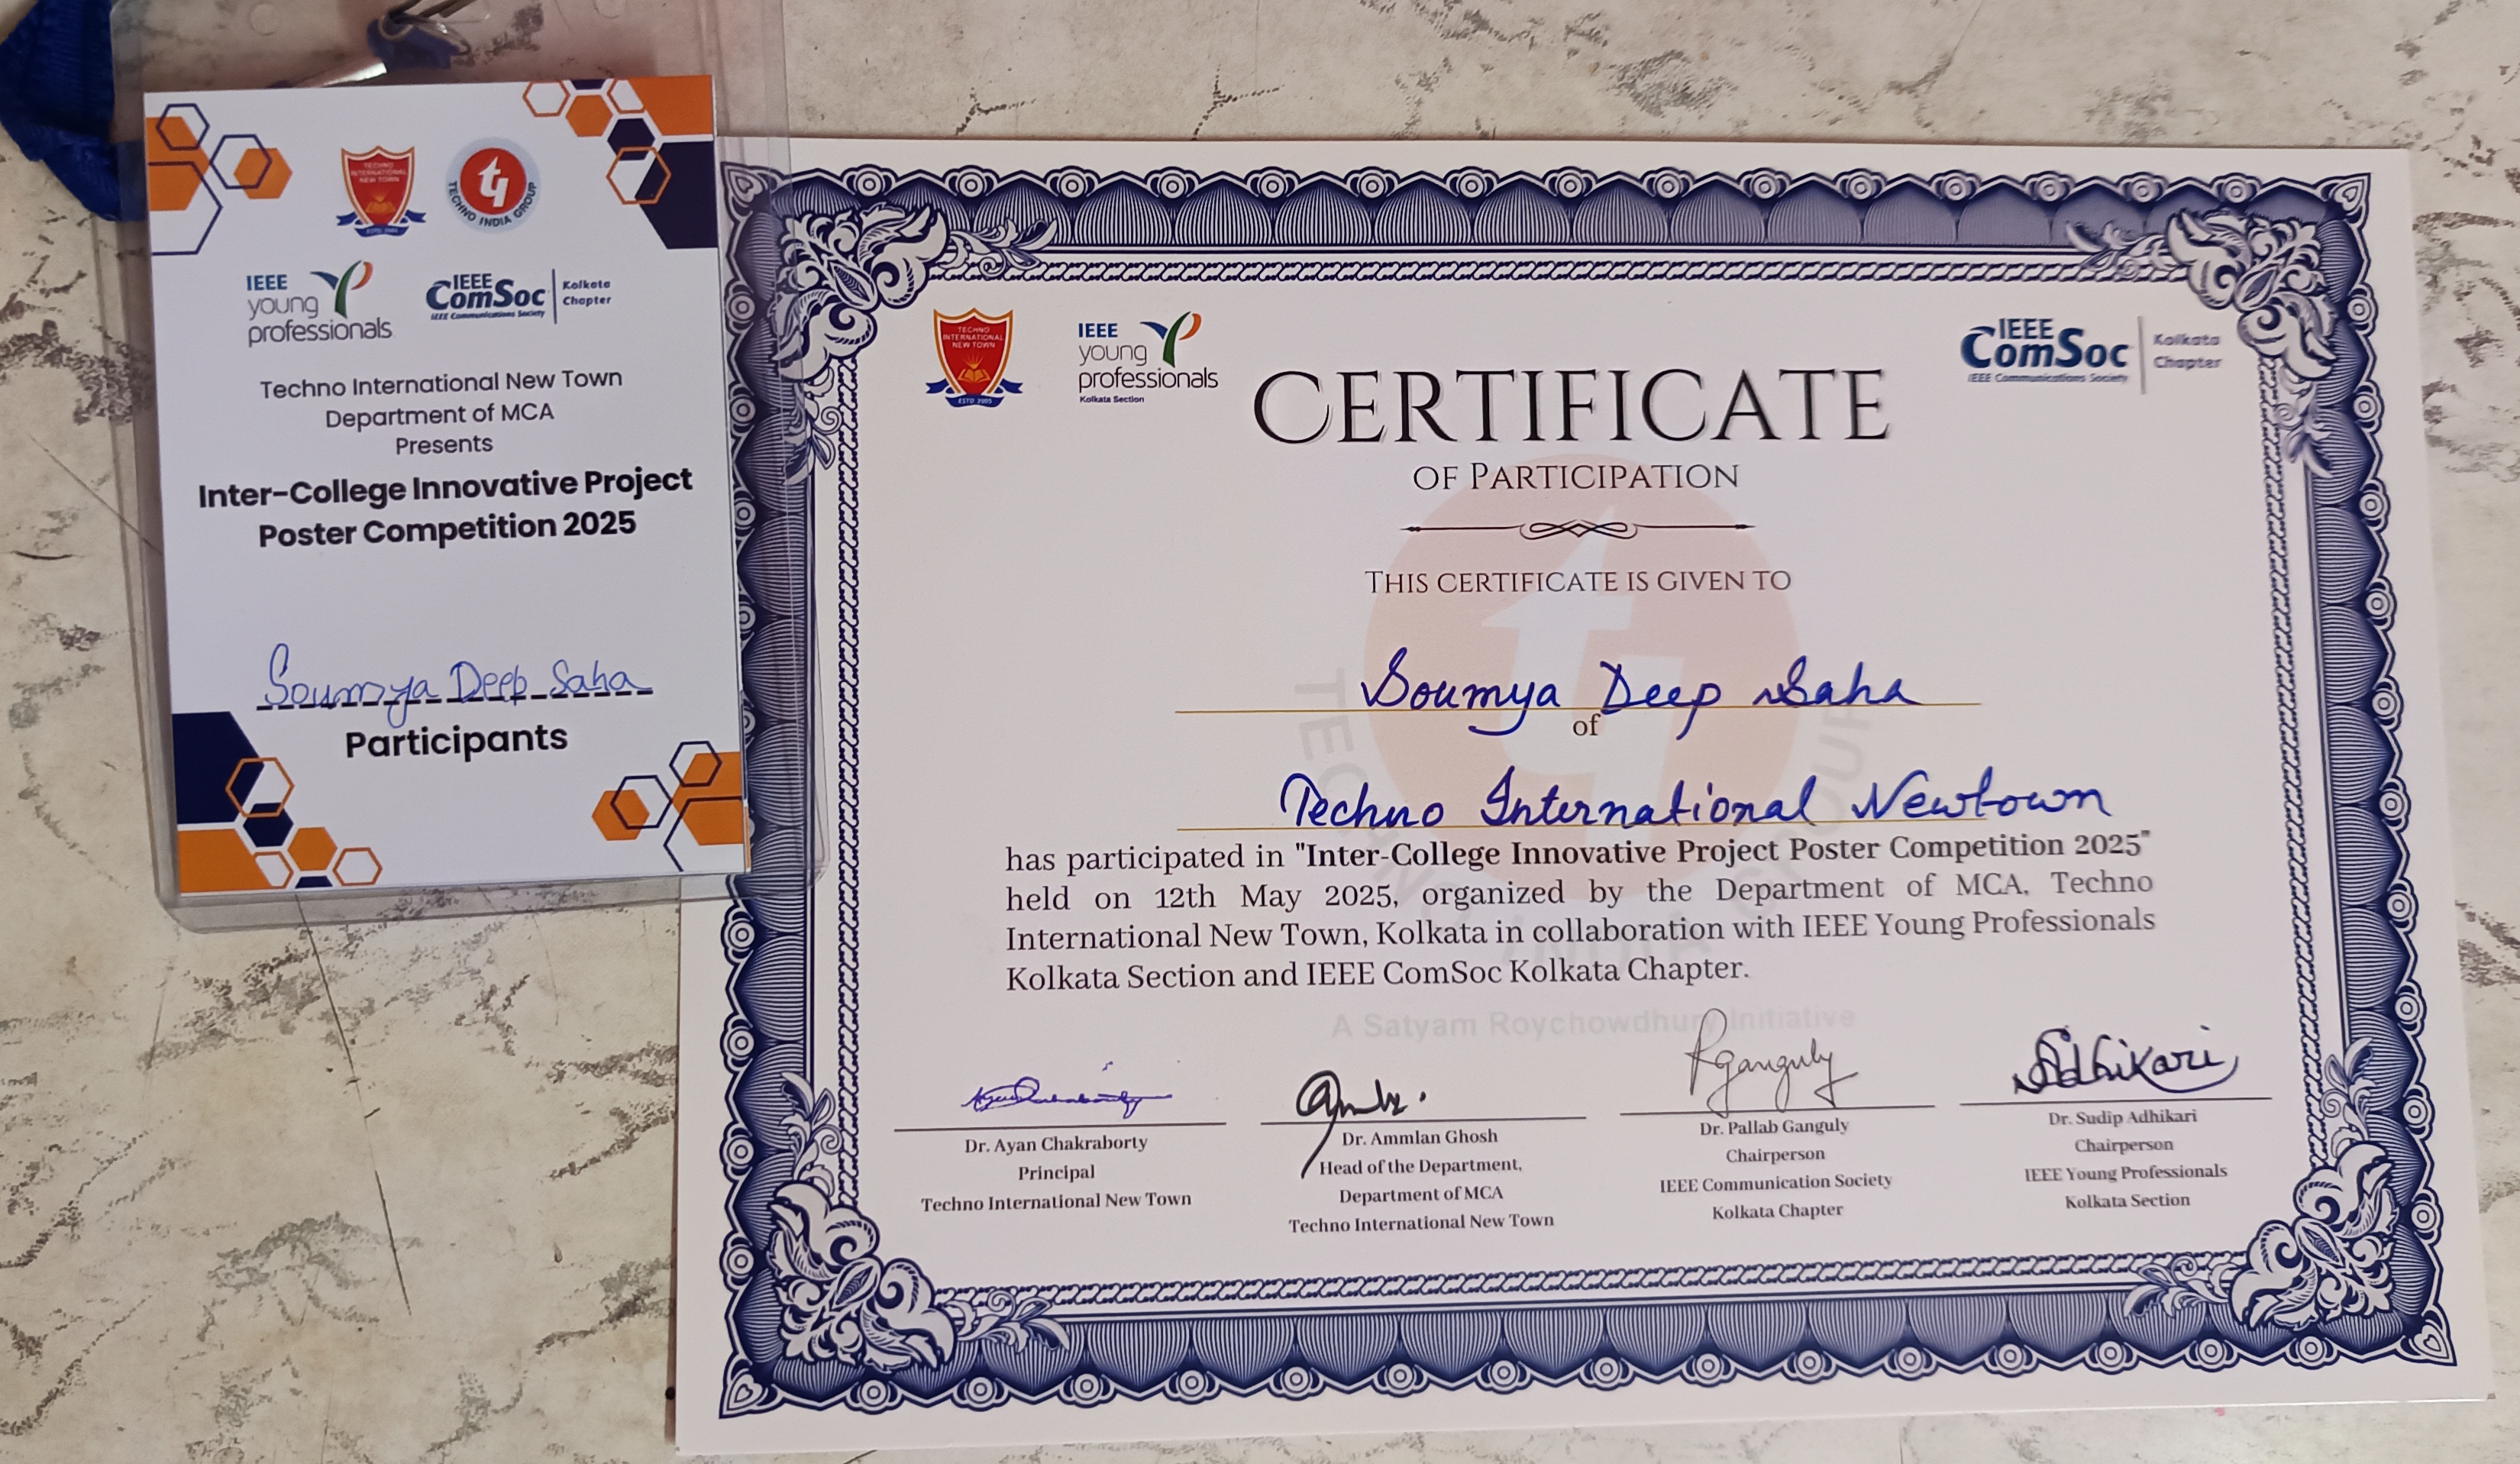 TECHNO
INTERNATIONAL
NEW TOWN
ESTD 2005
TECHNO INDIA GROUP
IEEE
young
professionals
IEEE
ComSoc
IEEE Communications Society
Kolkata
Chapter
Techno International New Town
Department of MCA
Presents
Inter-College Innovative Project
Poster Competition 2025
Soumya Deep Saha
Participants
TECHNO
INTERNATIONAL
NEW TOWN
ESTD 2005
IEEE
young
professionals
Kolkata Section
IEEE
ComSoc
IEEE Communications Society
Kolkata
Chapter
CERTIFICATE
OF PARTICIPATION
THIS CERTIFICATE IS GIVEN TO
Soumya Deep Saha
of
Techno International Newtown
has participated in "Inter-College Innovative Project Poster Competition 2025"
held on 12th May 2025, organized by the Department of MCA, Techno
International New Town, Kolkata in collaboration with IEEE Young Professionals
Kolkata Section and IEEE ComSoc Kolkata Chapter.
TECHNO INDIA GROUP
A Satyam Roychowdhury Initiative
Dr. Ayan Chakraborty
Principal
Techno International New Town
Dr. Ammlan Ghosh
Head of the Department,
Department of MCA
Techno International New Town
PGanguly
Dr. Pallab Ganguly
Chairperson
IEEE Communication Society
Kolkata Chapter
SAdhikari
Dr. Sudip Adhikari
Chairperson
IEEE Young Professionals
Kolkata Section